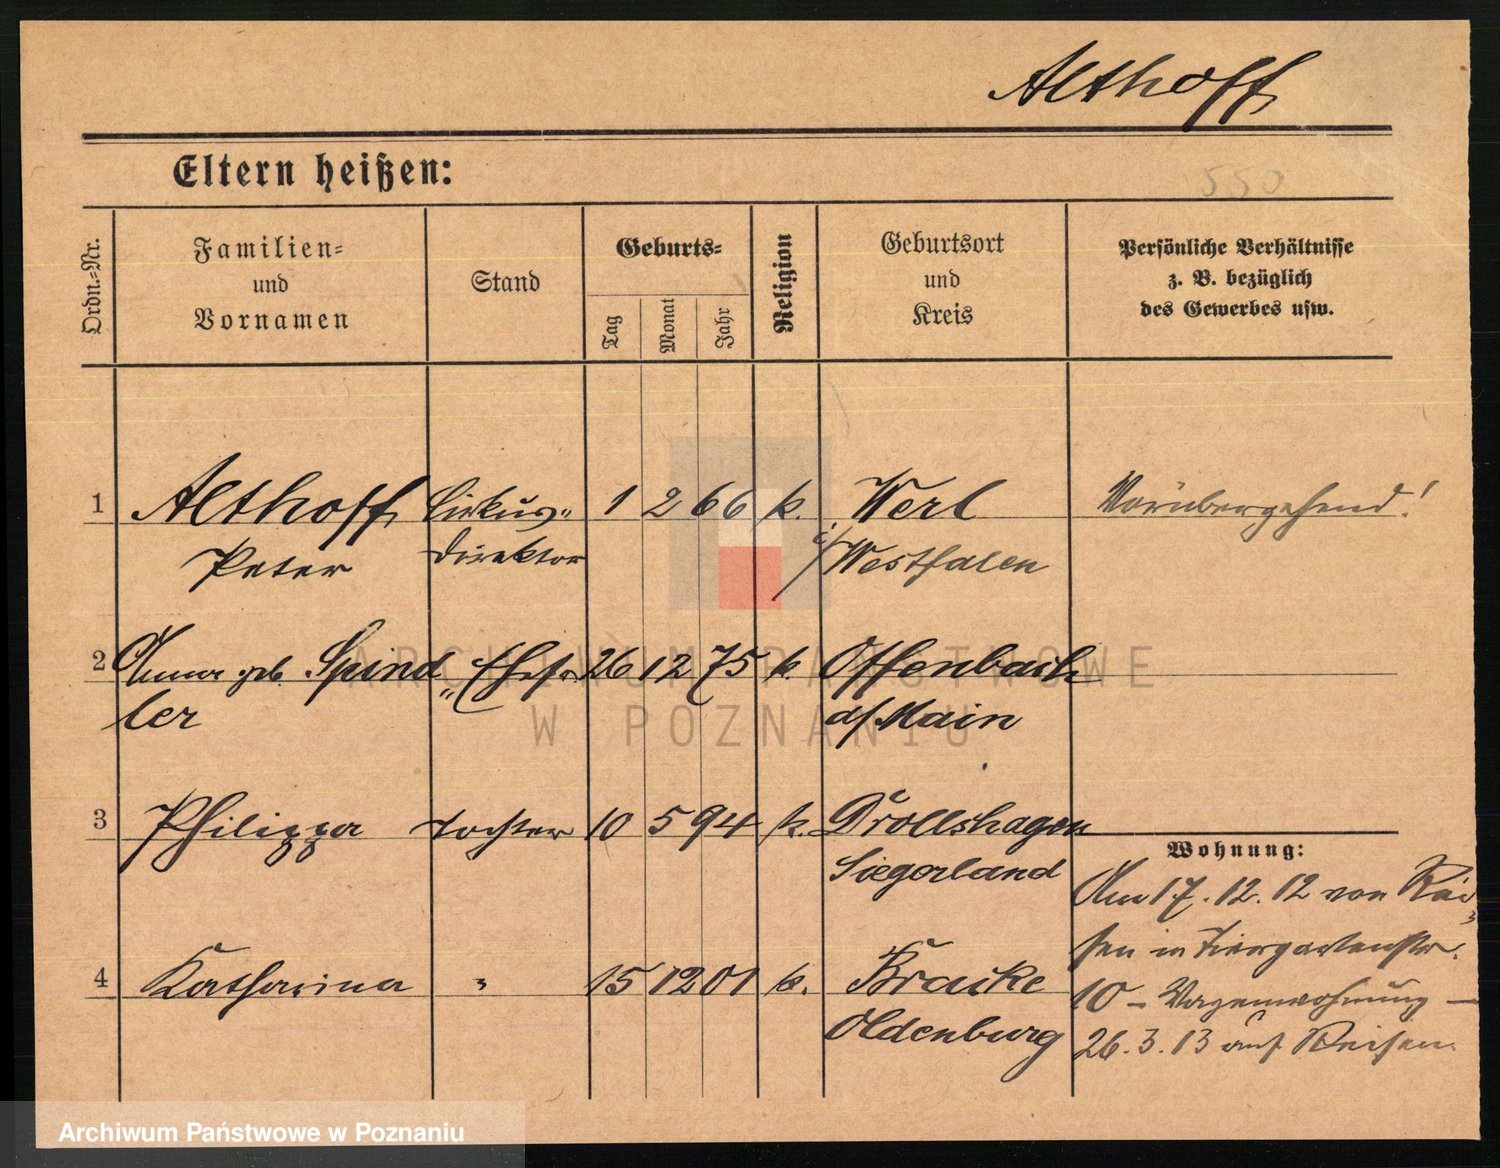 Althoff
Eltern heißen:
550
Ordn.-Nr.
Familien-
und
Vornamen
Stand
Geburts-
Tag
Monat
Jahr
Religion
Geburtsort
und
Kreis
Persönliche Verhältnisse
z. B. bezüglich
des Gewerbes usw.
1 Althoff Cirkus- 1 2 66 k. Werl Vorübergehend!
Peter Direktor i/Westfalen
2 Anna geb. Spind Ehefr. 26 12 75 k. Offenbach
ler a/Main
3 Philippa Tochter 10 5 94 k. Drollshagen
Siegerland
Wohnung:
Am 17. 12. 12 von
sen in Tiergartenstr.
4 Katharina " 15 12 01 k. Bracke
Oldenburg
10 – Wagenwohnung –
26. 3. 13 auf Reisen.
ARCHIWUM PAŃSTWOWE
W POZNANIU
Archiwum Państwowe w Poznaniu